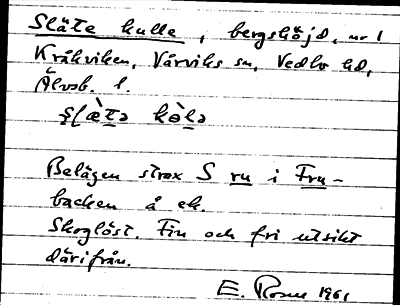 Släte kulle, bergshöjd, nr 1
Kråkviken, Vårviks sn, Vedbo hd,
Älvsb. l.
kɵ̀lə
Belägen strax S ru i Fru-
backen å ek.
Skoglöst. Fin och fri utsikt
därifrån.
E. Rosm 1961